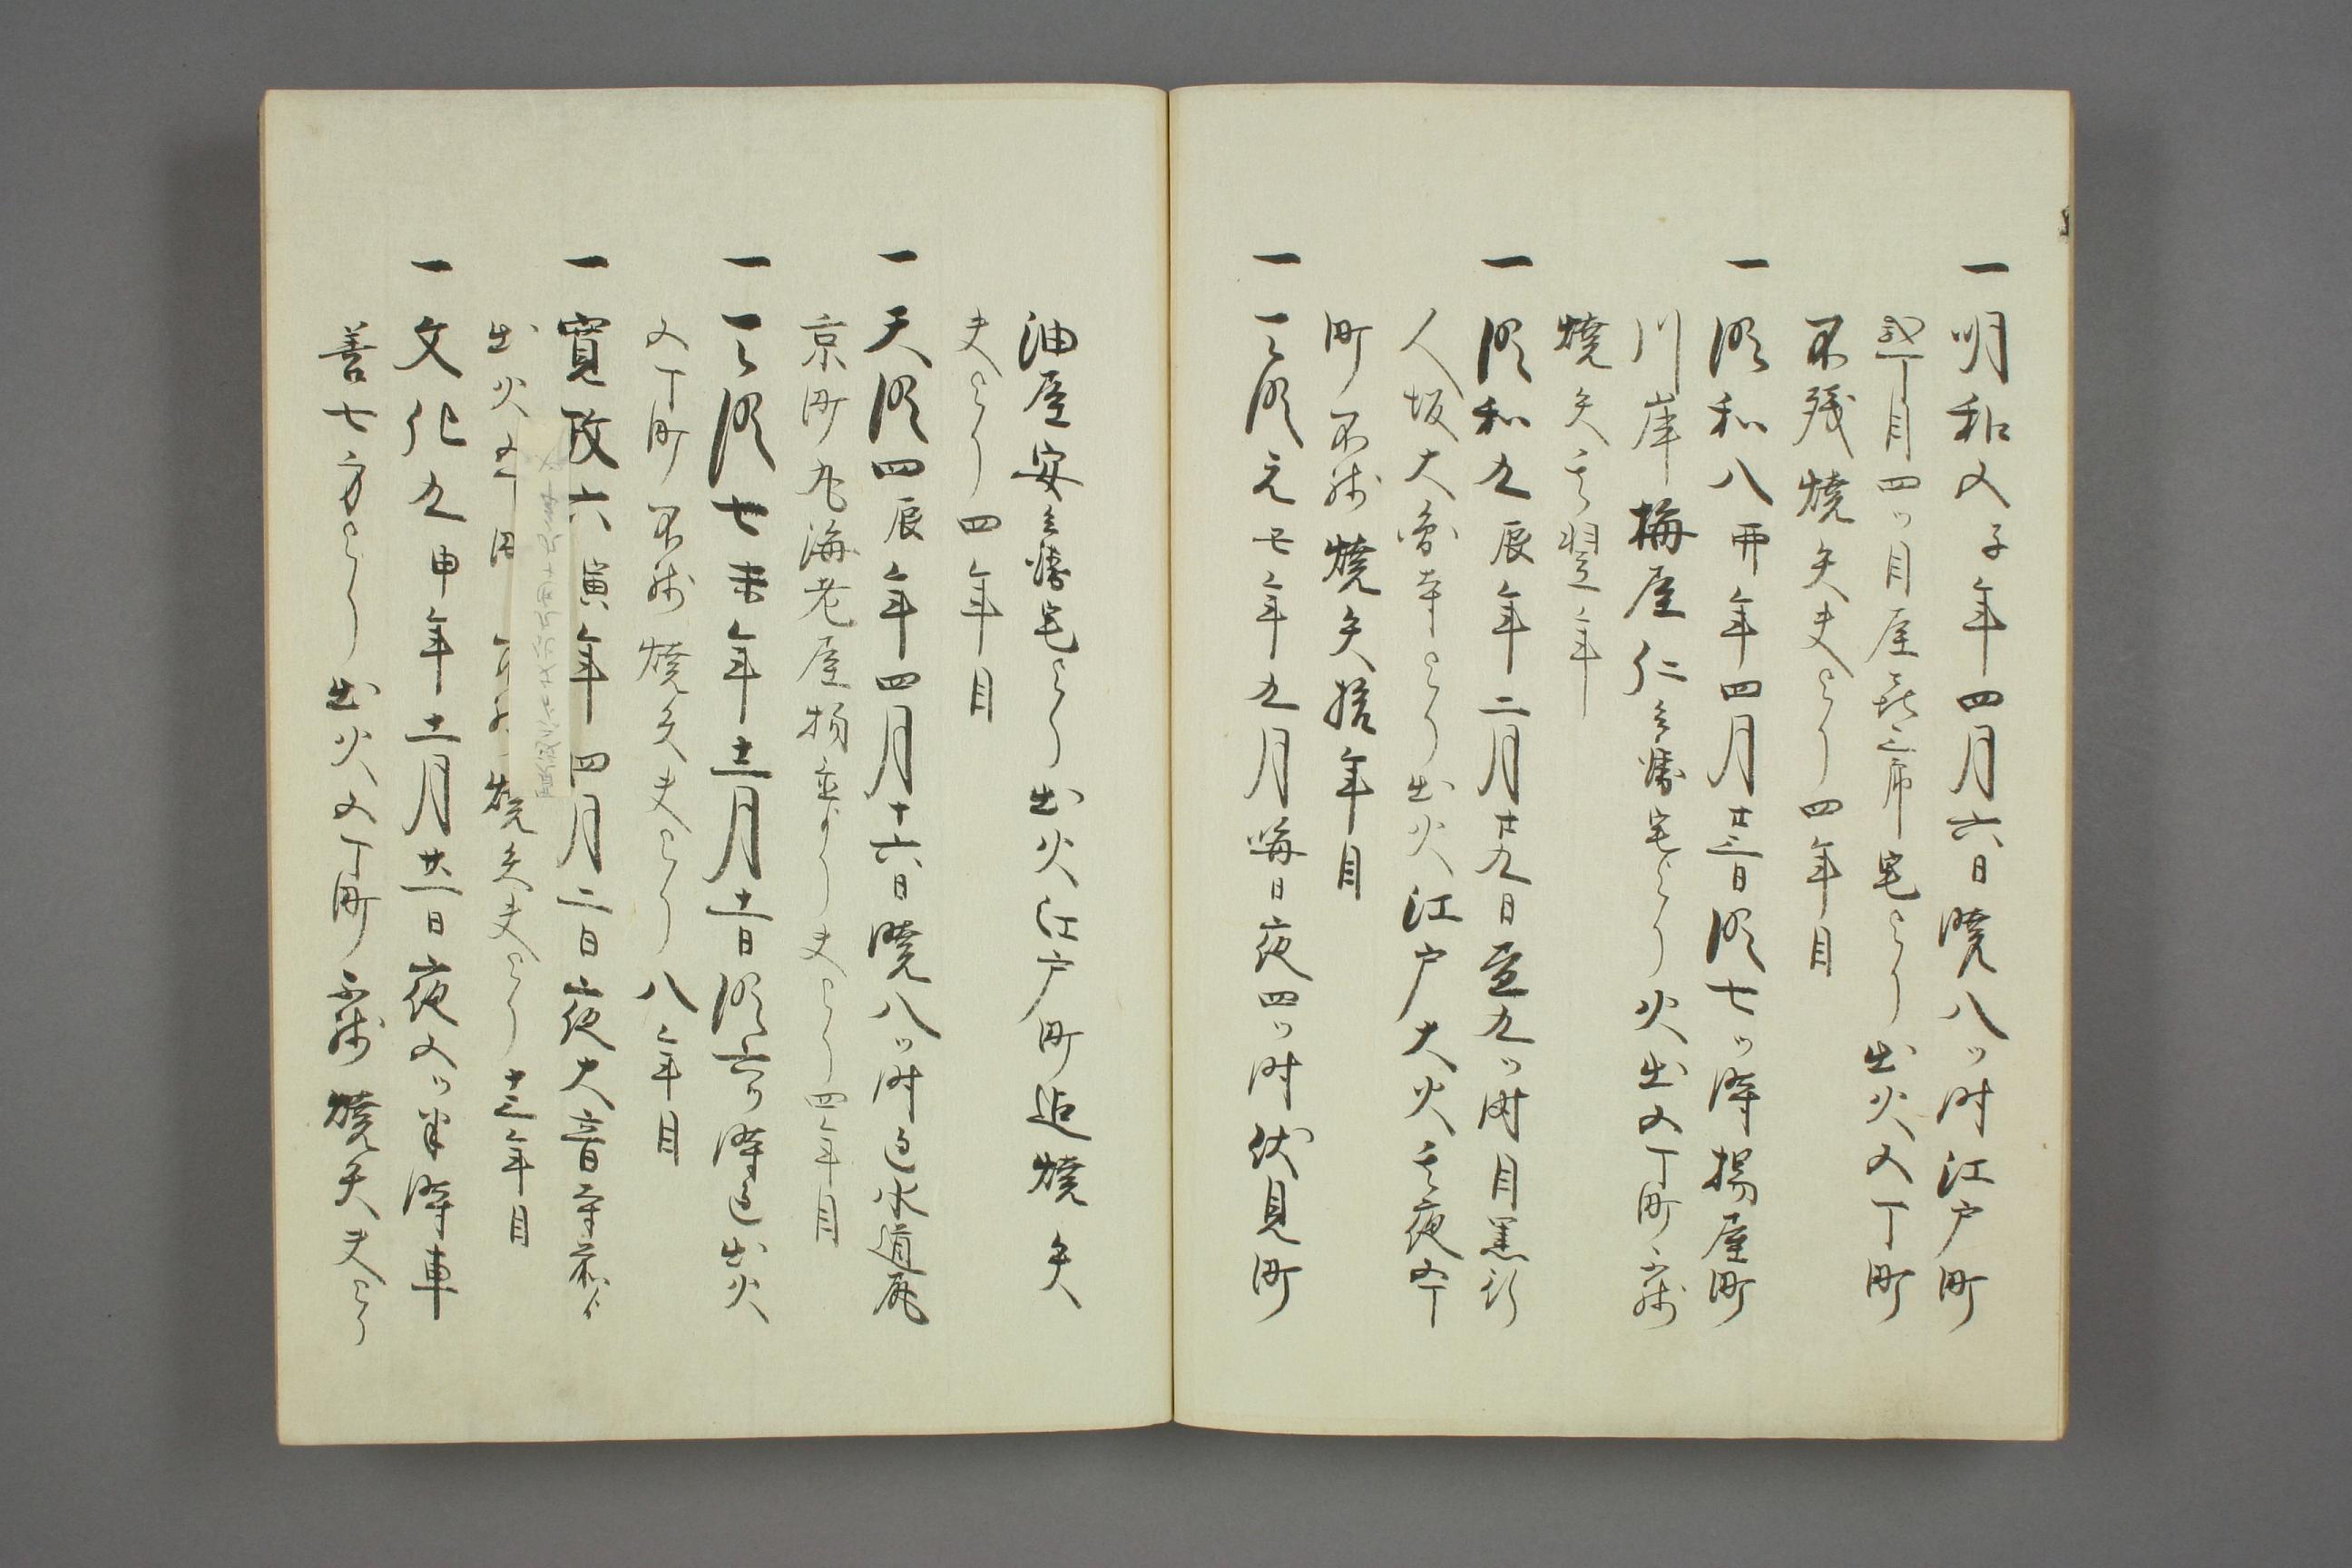 一明和五子年四月六日暁八ツ時江戸町
弐丁目四ツ目屋善三郎宅より出火五丁町
不残焼失夫より四年目
一同和八卯年四月廿三日同七ツ時揚屋町
川岸梅屋仁兵衛宅より火出五丁町不残
焼失其翌年
一同和九辰年二月廿九日昼九ツ時目黒行
人坂大円寺より出火江戸大火其夜五丁
町不残焼失拾年目
一天明元丑年九月晦日夜四ツ時伏見町
油屋安兵衛宅より出火江戸町迄焼失
夫より四年目
一天明四辰年四月十六日暁八ツ時過水道尻
京町丸海老屋物置より夫より四年目
一天明七未年十一月十一日同六ツ時過出火
五丁町不残焼失夫より八ヶ年目
一寛政六寅年四月二日夜大音寺前より
出火五丁町
焼失夫より十三年目
一文化九申年十一月廿一日夜五ツ半時車
善七方より出火五丁町不残焼失夫より